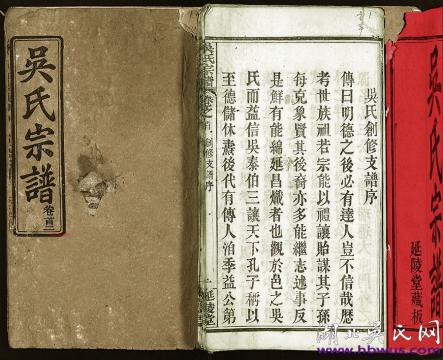 吳氏宗譜
卷首
吳氏創修支譜序
傳曰明德之後必有達人豈不信哉歷
考世族祖若宗能以禮讓貽謀其子孫
每克象賢其後裔亦多能繼志述事反
是鮮有能綿延昌熾者也觀於邑之吳
氏而益信吳泰伯三讓天下孔子稱以
至德儲休燾後代有傳人洎季益公第
吳氏宗譜 卷之首 創修支譜序 一 延陵堂
吳氏宗譜
延陵堂藏板
湖北吴氏网
www.hbwus.com